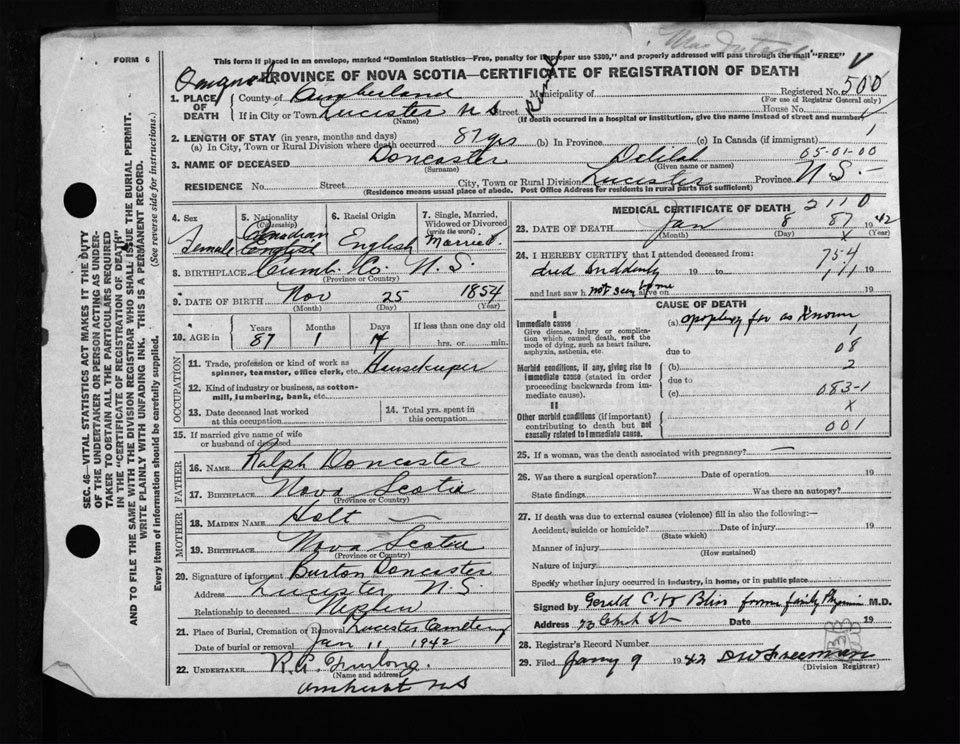 FORM 6
This form if placed in an envelope, marked "Dominion Statistics—Free, penalty for improper use $300," and properly addressed will pass through the mail "FREE"
PROVINCE OF NOVA SCOTIA—CERTIFICATE OF REGISTRATION OF DEATH
Rural
Registered No. 500
(For use of Registrar General only)
1. PLACE OF DEATH
County of Cumberland
Municipality of
If in City or Town Leicester N S Street House No.
(Name)
(If death occurred in a hospital or institution, give the name instead of street and number)
2. LENGTH OF STAY (in years, months and days)
(a) In City, Town or Rural Division where death occurred 87 yrs (b) In Province (c) In Canada (if immigrant) 1
3. NAME OF DECEASED Doncaster Delilah 05-01-00
(Surname) (Given name or names)
RESIDENCE No. Street City, Town or Rural Division Leicester Province N.S.
(Residence means usual place of abode. Post Office Address for residents in rural parts not sufficient)
4. Sex Female
5. Nationality (Citizenship) Canadian English
6. Racial Origin English
7. Single, Married, Widowed or Divorced (write the word) Married.
8. BIRTHPLACE Cumb. Co. N.S.
(Province or Country)
9. DATE OF BIRTH Nov 25 1854
(Month) (Day) (Year)
10. AGE in Years 87 Months 1 Days 14 If less than one day old hrs. or min.
OCCUPATION
11. Trade, profession or kind of work as spinner, teamster, office clerk, etc. Housekeeper
12. Kind of industry or business, as cotton-mill, lumbering, bank, etc.
13. Date deceased last worked at this occupation
14. Total yrs. spent in this occupation
15. If married give name of wife or husband of deceased
FATHER
16. NAME Ralph Doncaster
17. BIRTHPLACE Nova Scotia
(Province or Country)
MOTHER
18. MAIDEN NAME Holt
19. BIRTHPLACE Nova Scotia
(Province or Country)
20. Signature of informant Burton Doncaster
Address Leicester N.S.
Relationship to deceased Nephew
21. Place of Burial, Cremation or Removal Leicester Cemetery
Date of burial or removal Jan 11 1942
22. UNDERTAKER R.A. Furlong.
(Name and address)
Amherst N S
MEDICAL CERTIFICATE OF DEATH 2110
23. DATE OF DEATH Jan 8 87 1942
(Month) (Day) (Year)
x
24. I HEREBY CERTIFY that I attended deceased from:
754
died suddenly 19 to 19
and last saw h not seen by me alive on 19
CAUSE OF DEATH
I
Immediate cause
Give disease, injury or complication which caused death, not the mode of dying, such as heart failure, asphyxia, asthenia, etc.
(a) apoplexy far as known
1
due to 08
Morbid conditions, if any, giving rise to immediate cause (stated in order proceeding backwards from immediate cause).
(b) 2
due to
(c) 083-1
II
x
Other morbid conditions (if important) contributing to death but not causally related to immediate cause.
001
25. If a woman, was the death associated with pregnancy? —
26. Was there a surgical operation? Date of operation 19
State findings Was there an autopsy?
27. If death was due to external causes (violence) fill in also the following:—
Accident, suicide or homicide? Date of injury 19
(State which)
Manner of injury
(How sustained)
Nature of injury
Specify whether injury occurred in industry, in home, or in public place
Signed by Gerald C W Bliss former family Physician M.D.
Address Date 19
28. Registrar's Record Number
29. Filed Jany 9 1942 D W Freeman
SEC. 46—VITAL STATISTICS ACT MAKES IT THE DUTY
OF THE UNDERTAKER OR PERSON ACTING AS UNDER-
TAKER TO OBTAIN ALL THE PARTICULARS REQUIRED
IN THE "CERTIFICATE OF REGISTRATION OF DEATH"
AND TO FILE THE SAME WITH THE DIVISION REGISTRAR WHO SHALL ISSUE THE BURIAL PERMIT.
WRITE PLAINLY WITH UNFADING INK. THIS IS A PERMANENT RECORD.
Every item of information should be carefully supplied. (See reverse side for instructions.)